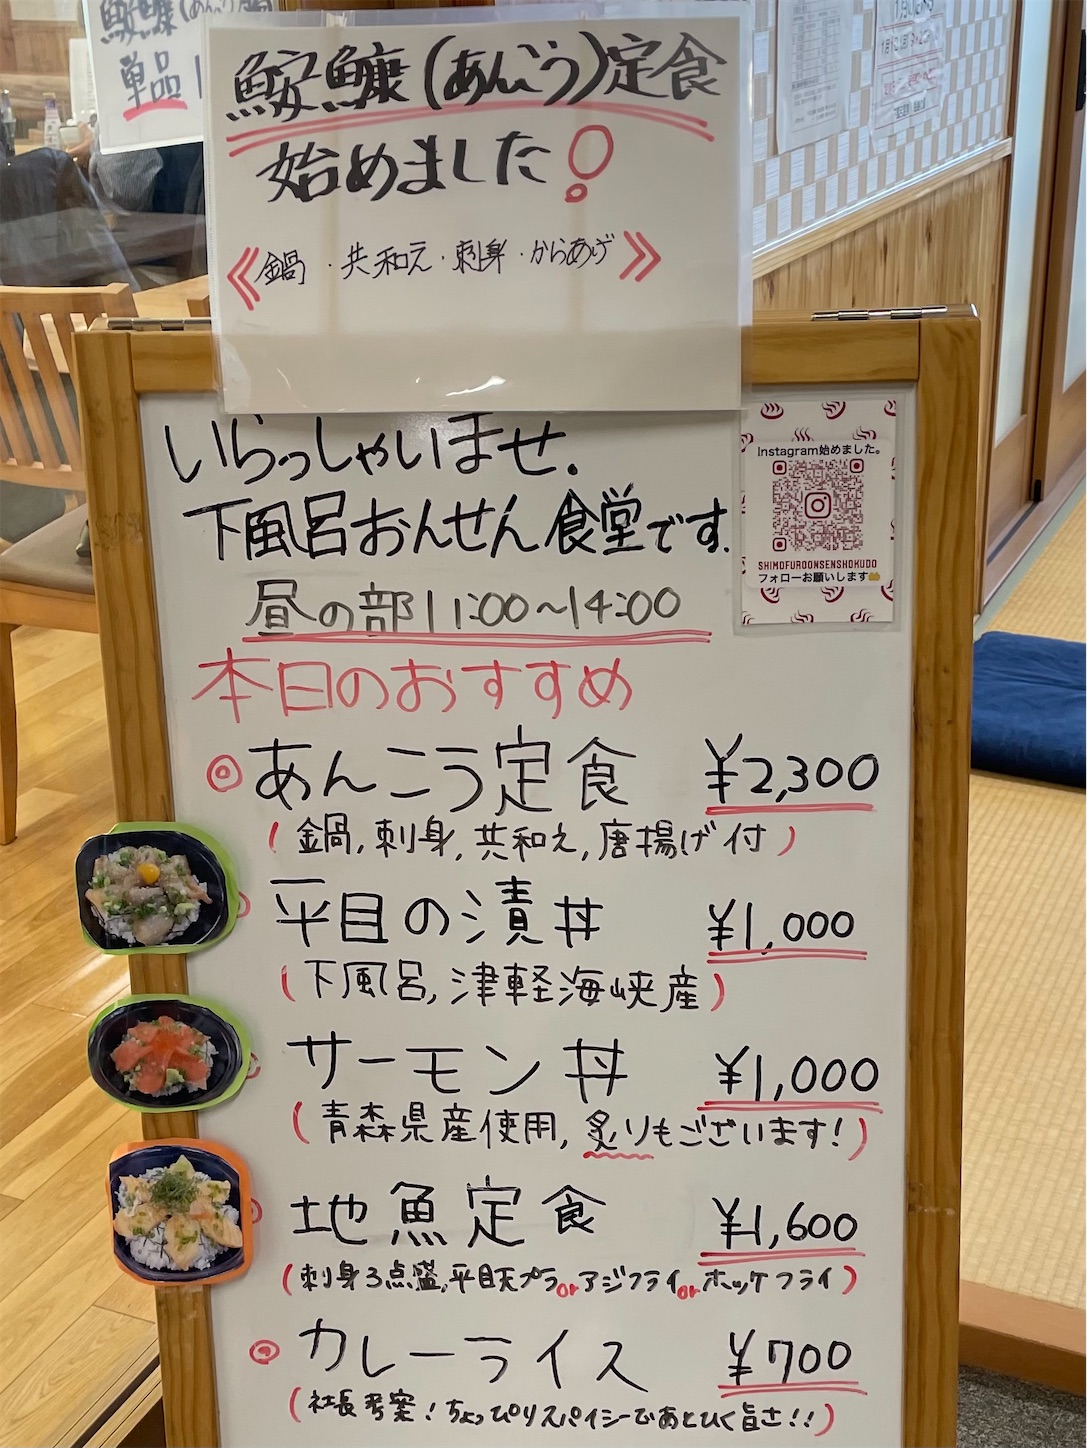 鮟鱇(あんこう
単品
鮟鱇(あんこう)定食
始めました!
《鍋・共和え・刺身・からあげ》
いらっしゃいませ.
下風呂おんせん食堂です.
Instagram始めました。
SHIMOFUROONSENSHOKUDO
フォローお願いします
昼の部11:00〜14:00
本日のおすすめ
◎あんこう定食 ¥2,300
(鍋,刺身,共和え,唐揚げ付)
平目の漬丼 ¥1,000
(下風呂,津軽海峡産)
サーモン丼 ¥1,000
(青森県産使用,炙りもございます!)
地魚定食 ¥1,600
(刺身3点盛,平目天プラorアジフライorホッケフライ)
◎カレーライス ¥700
(社長考案!ちょっぴりスパイシーであとひく旨さ!!)